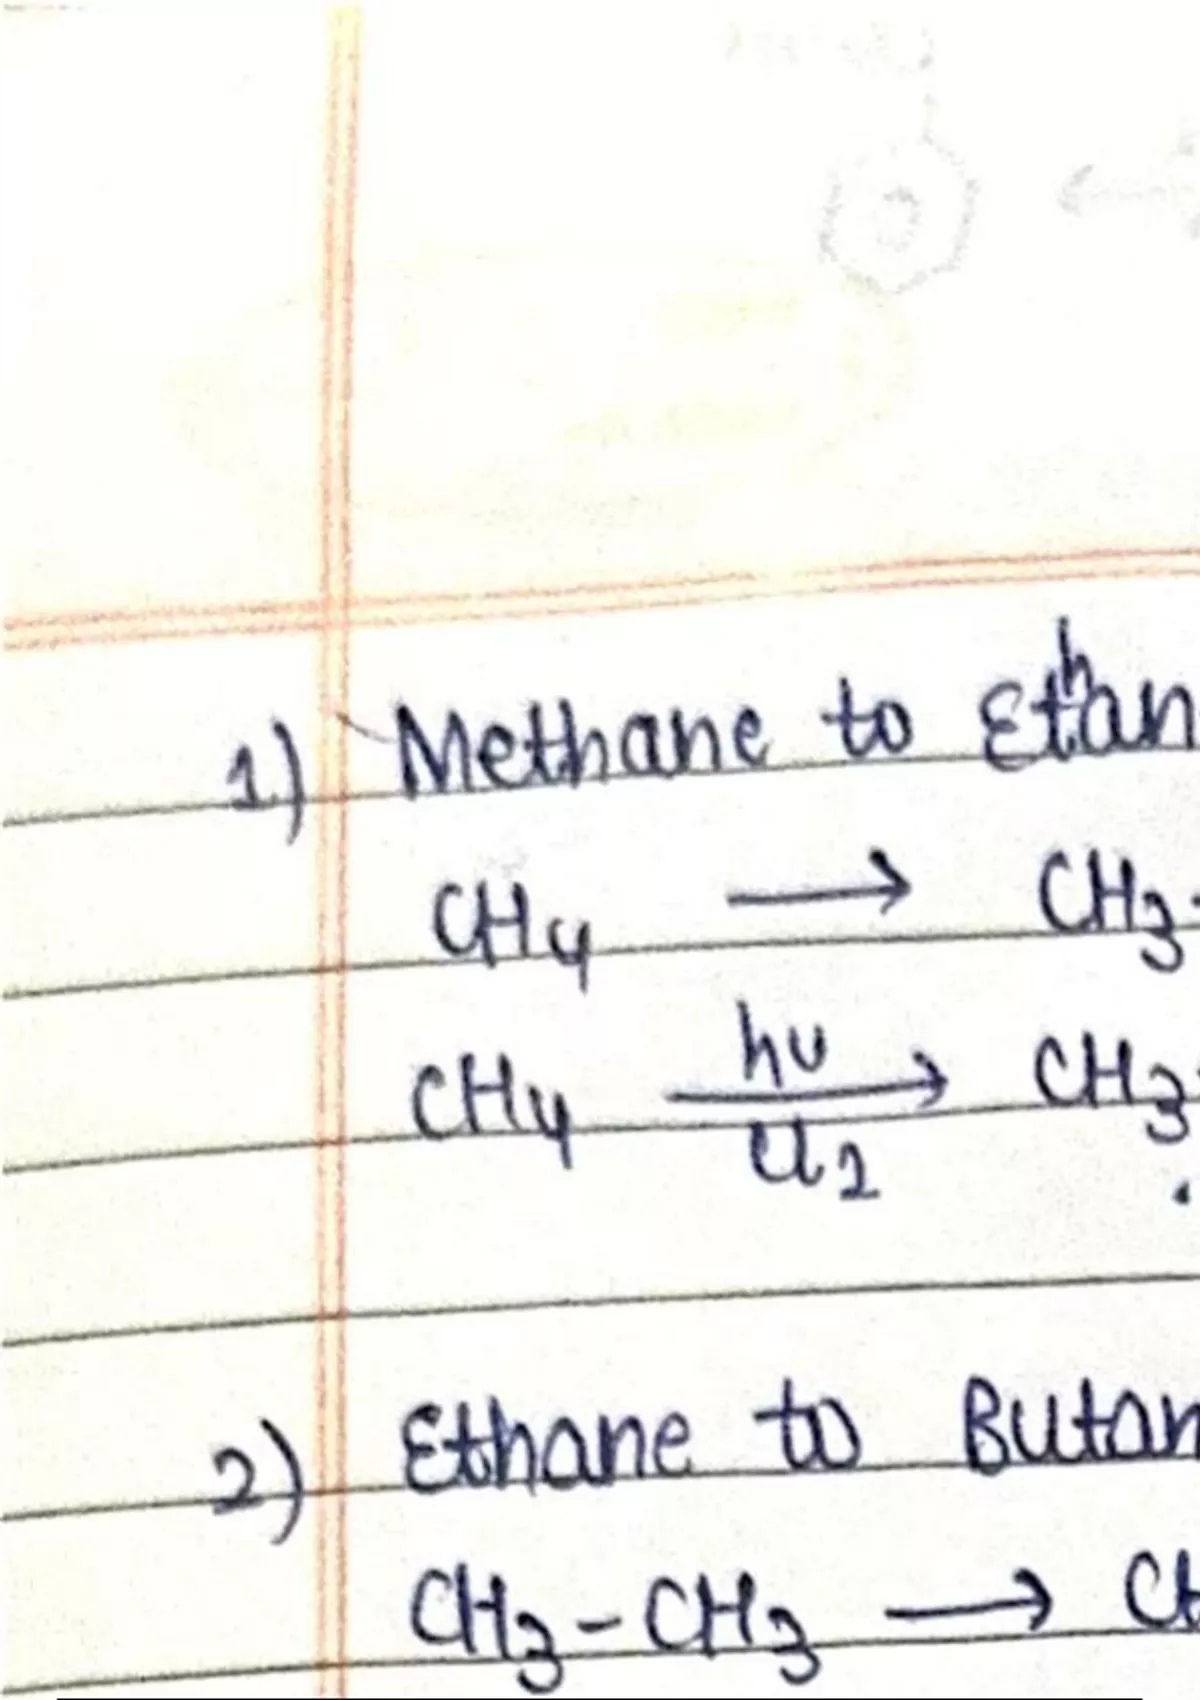 1) Methane to Ethan
CH4 ⟶ CH3-
CH4 hυ ⟶ Cl2 CH3-
2) Ethane to Butan
CH3-CH3 ⟶ CH